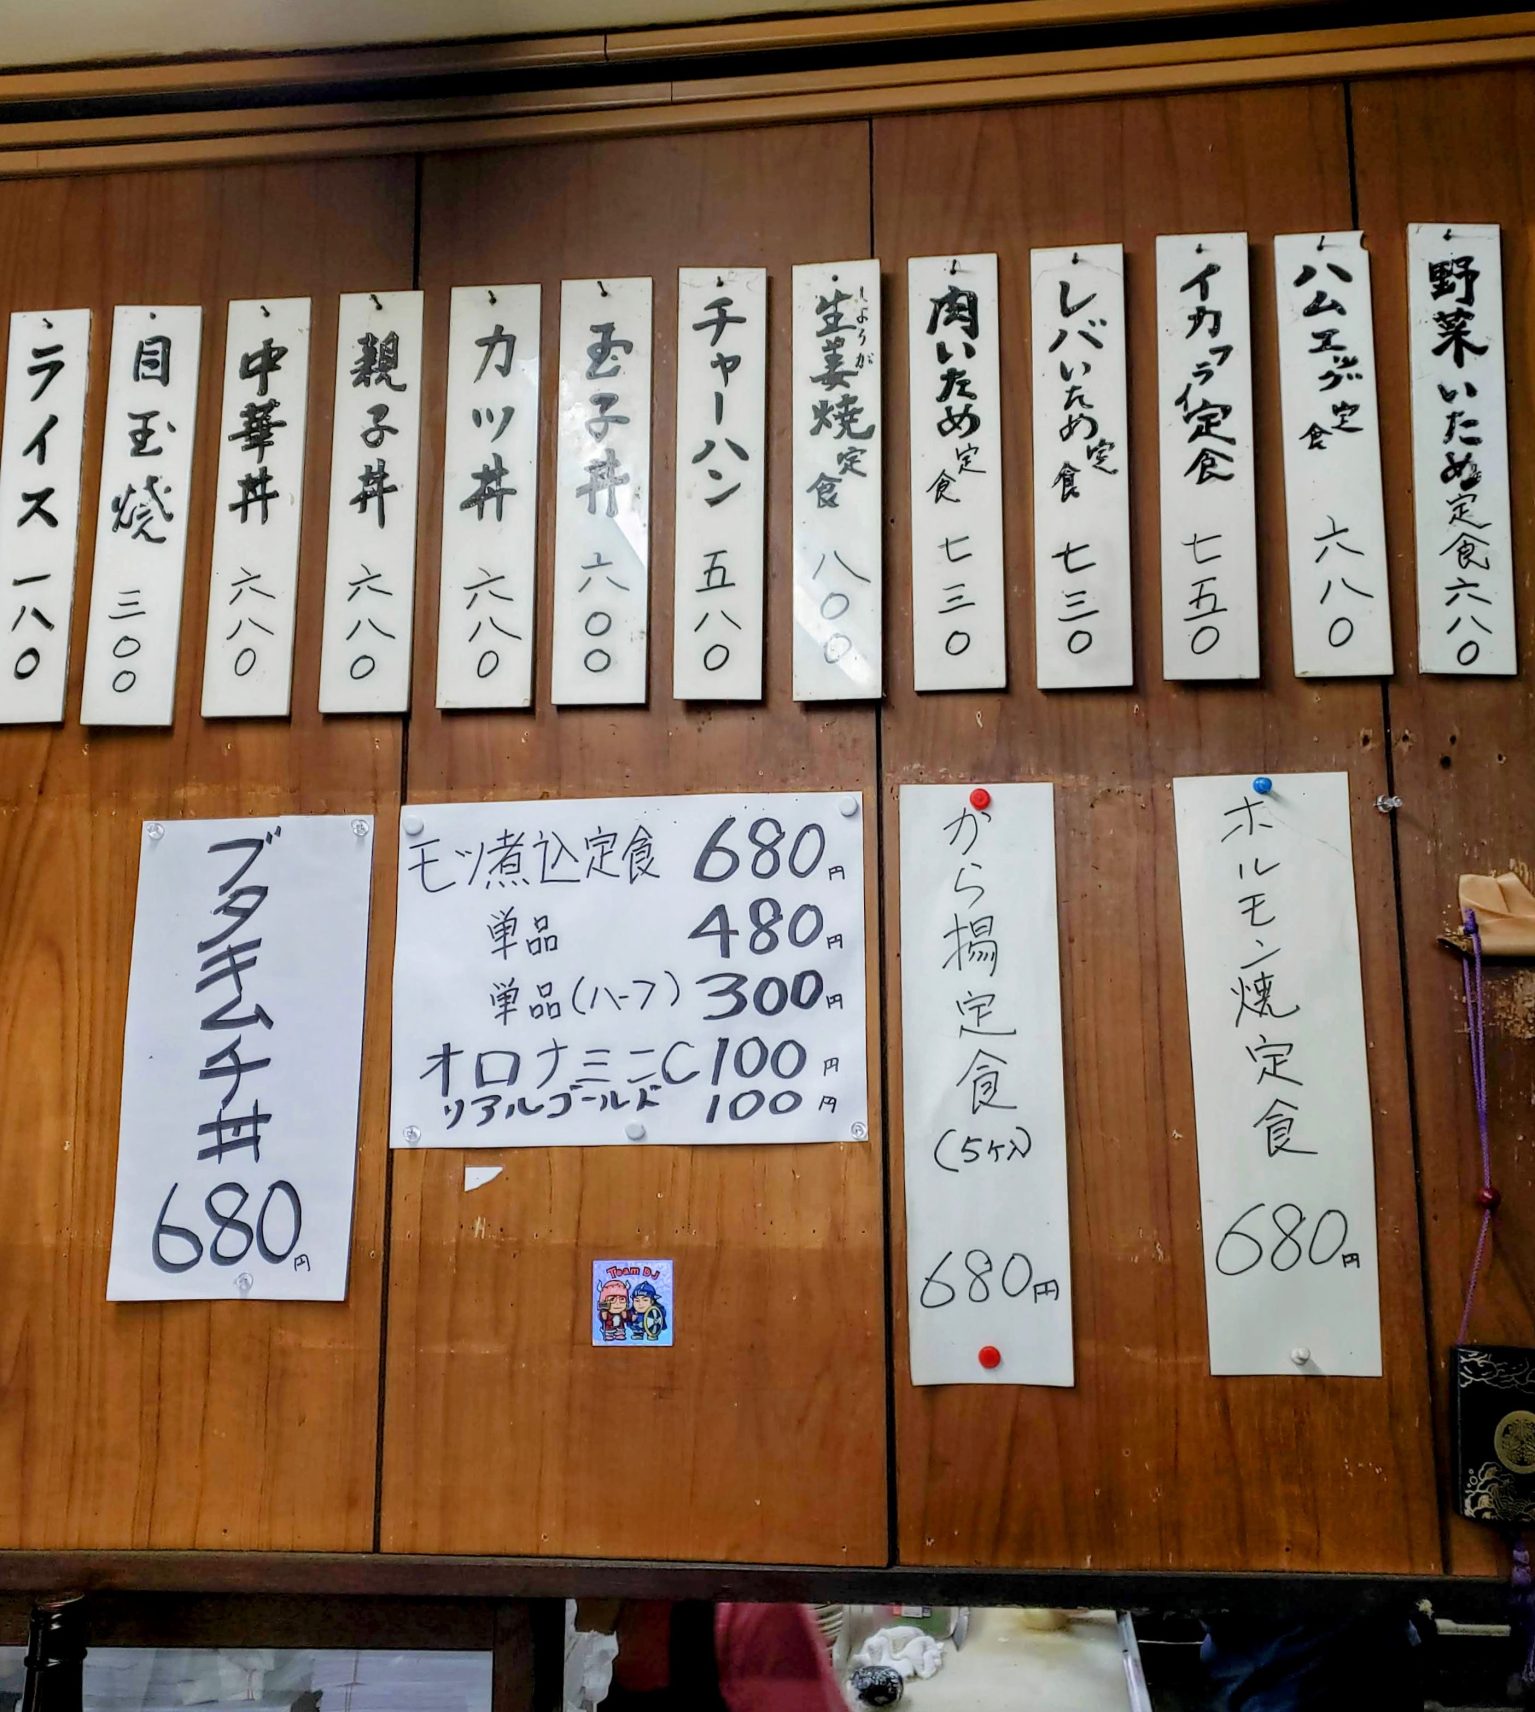 野菜いため定食 六八〇
ハムエッグ定食 六八〇
イカフライ定食 七五〇
レバいため定食 七三〇
肉いため定食 七三〇
生姜焼定食 八〇〇
しょうが
チャーハン 五八〇
玉子丼 六〇〇
カツ丼 六八〇
親子丼 六八〇
中華丼 六八〇
目玉焼 三〇〇
ライス 一八〇
ホルモン焼定食
680円
から揚定食
(5ケ入)
680円
モツ煮込定食 680円
単品 480円
単品(ハーフ) 300円
オロナミンC 100円
リアルゴールド 100円
ブタキムチ丼
680円
Team DJ